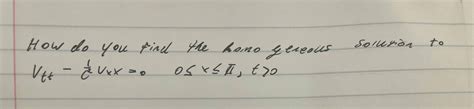 How do you find the homogeneous solution to
V_tt - 1/c V_xx = 0   0 ≤ x ≤ π, t > 0